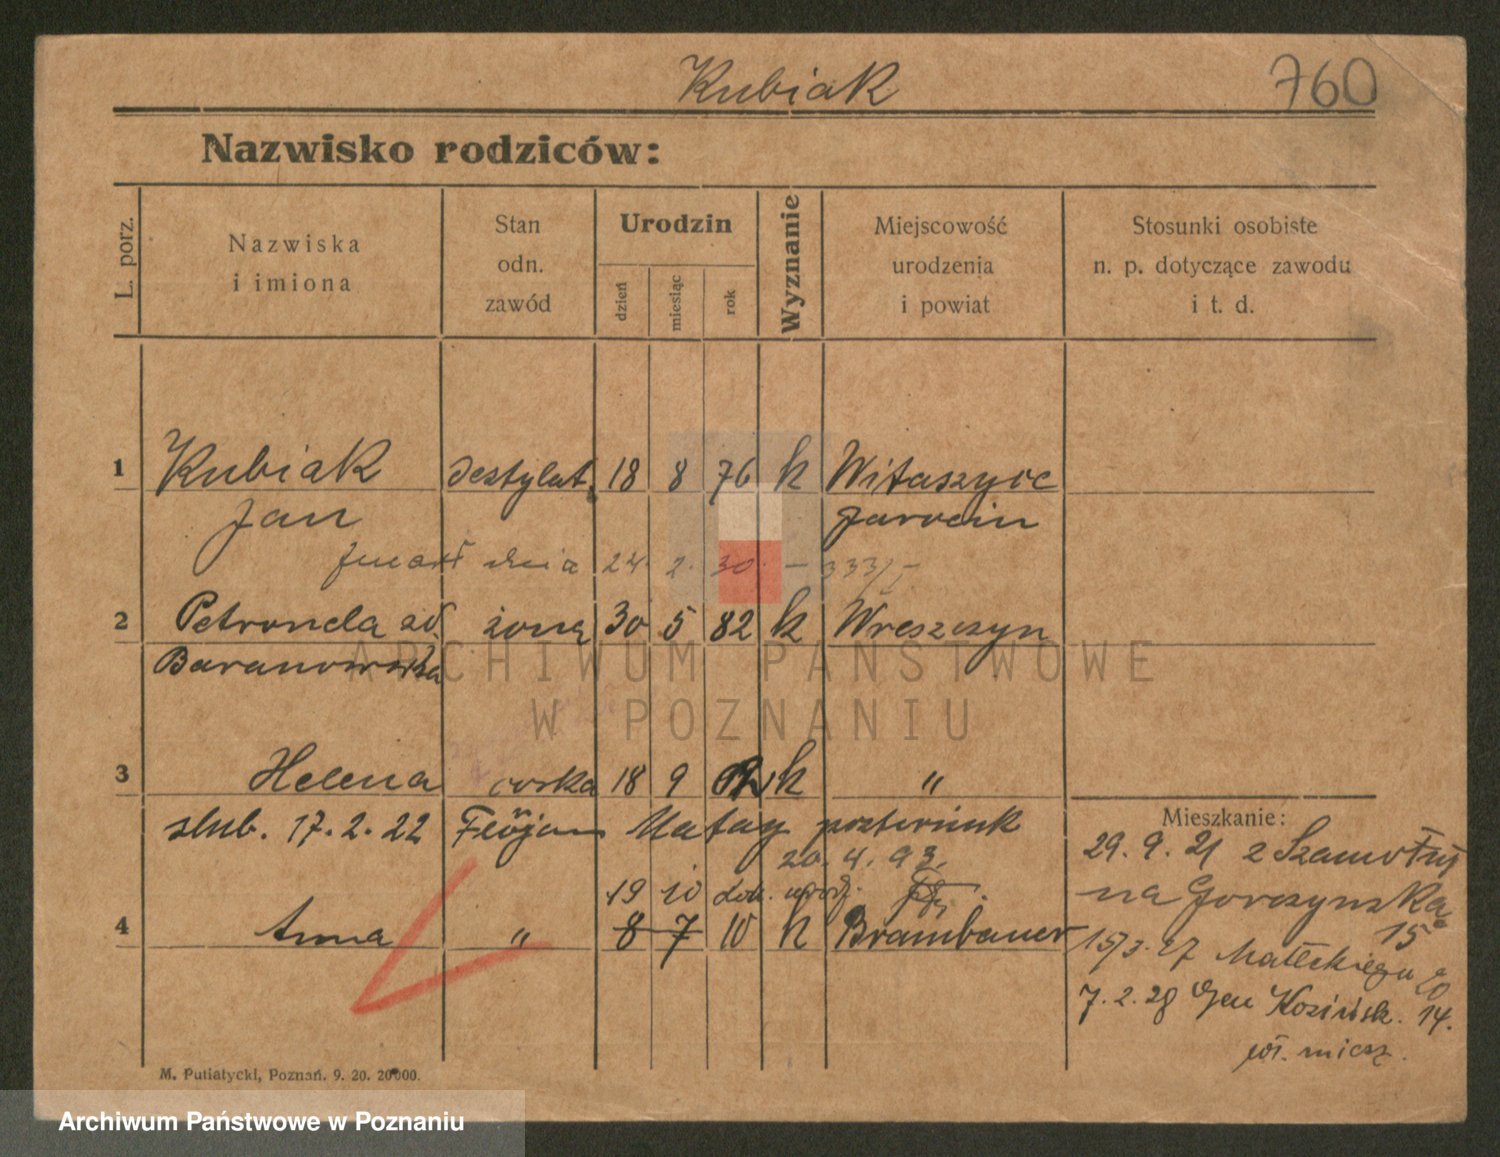 Kubiak
760
Nazwisko rodziców:
L. porz.
Nazwiska
i imiona
Stan
odn.
zawód
Urodzin
dzień
miesiąc
rok
Wyznanie
Miejscowość
urodzenia
i powiat
Stosunki osobiste
n. p. dotyczące zawodu
i t. d.
1 Kubiak destylat. 18 8 76 k Witaszyce
Jan Jarocin
dnia 24. 2. 30. — 333/
2 Petronela żona 30 5 82 k Wreszczyn
Baranowska
3 Helena corka 18 9 k "
ślub. 17.2.22 Matay
20.4.93.
19 10
4 Anna " 8 7 10 k Brambauer
Mieszkanie:
29.9.21 z Szamotuł
na Gorczynska
15
15/3.27 Małeckiego 20
7.2.28 Gen Kozińsk. 14.
wł. miesz.
M. Putiatycki, Poznań. 9. 20. 20000.
ARCHIWUM PAŃSTWOWE
W POZNANIU
Archiwum Państwowe w Poznaniu